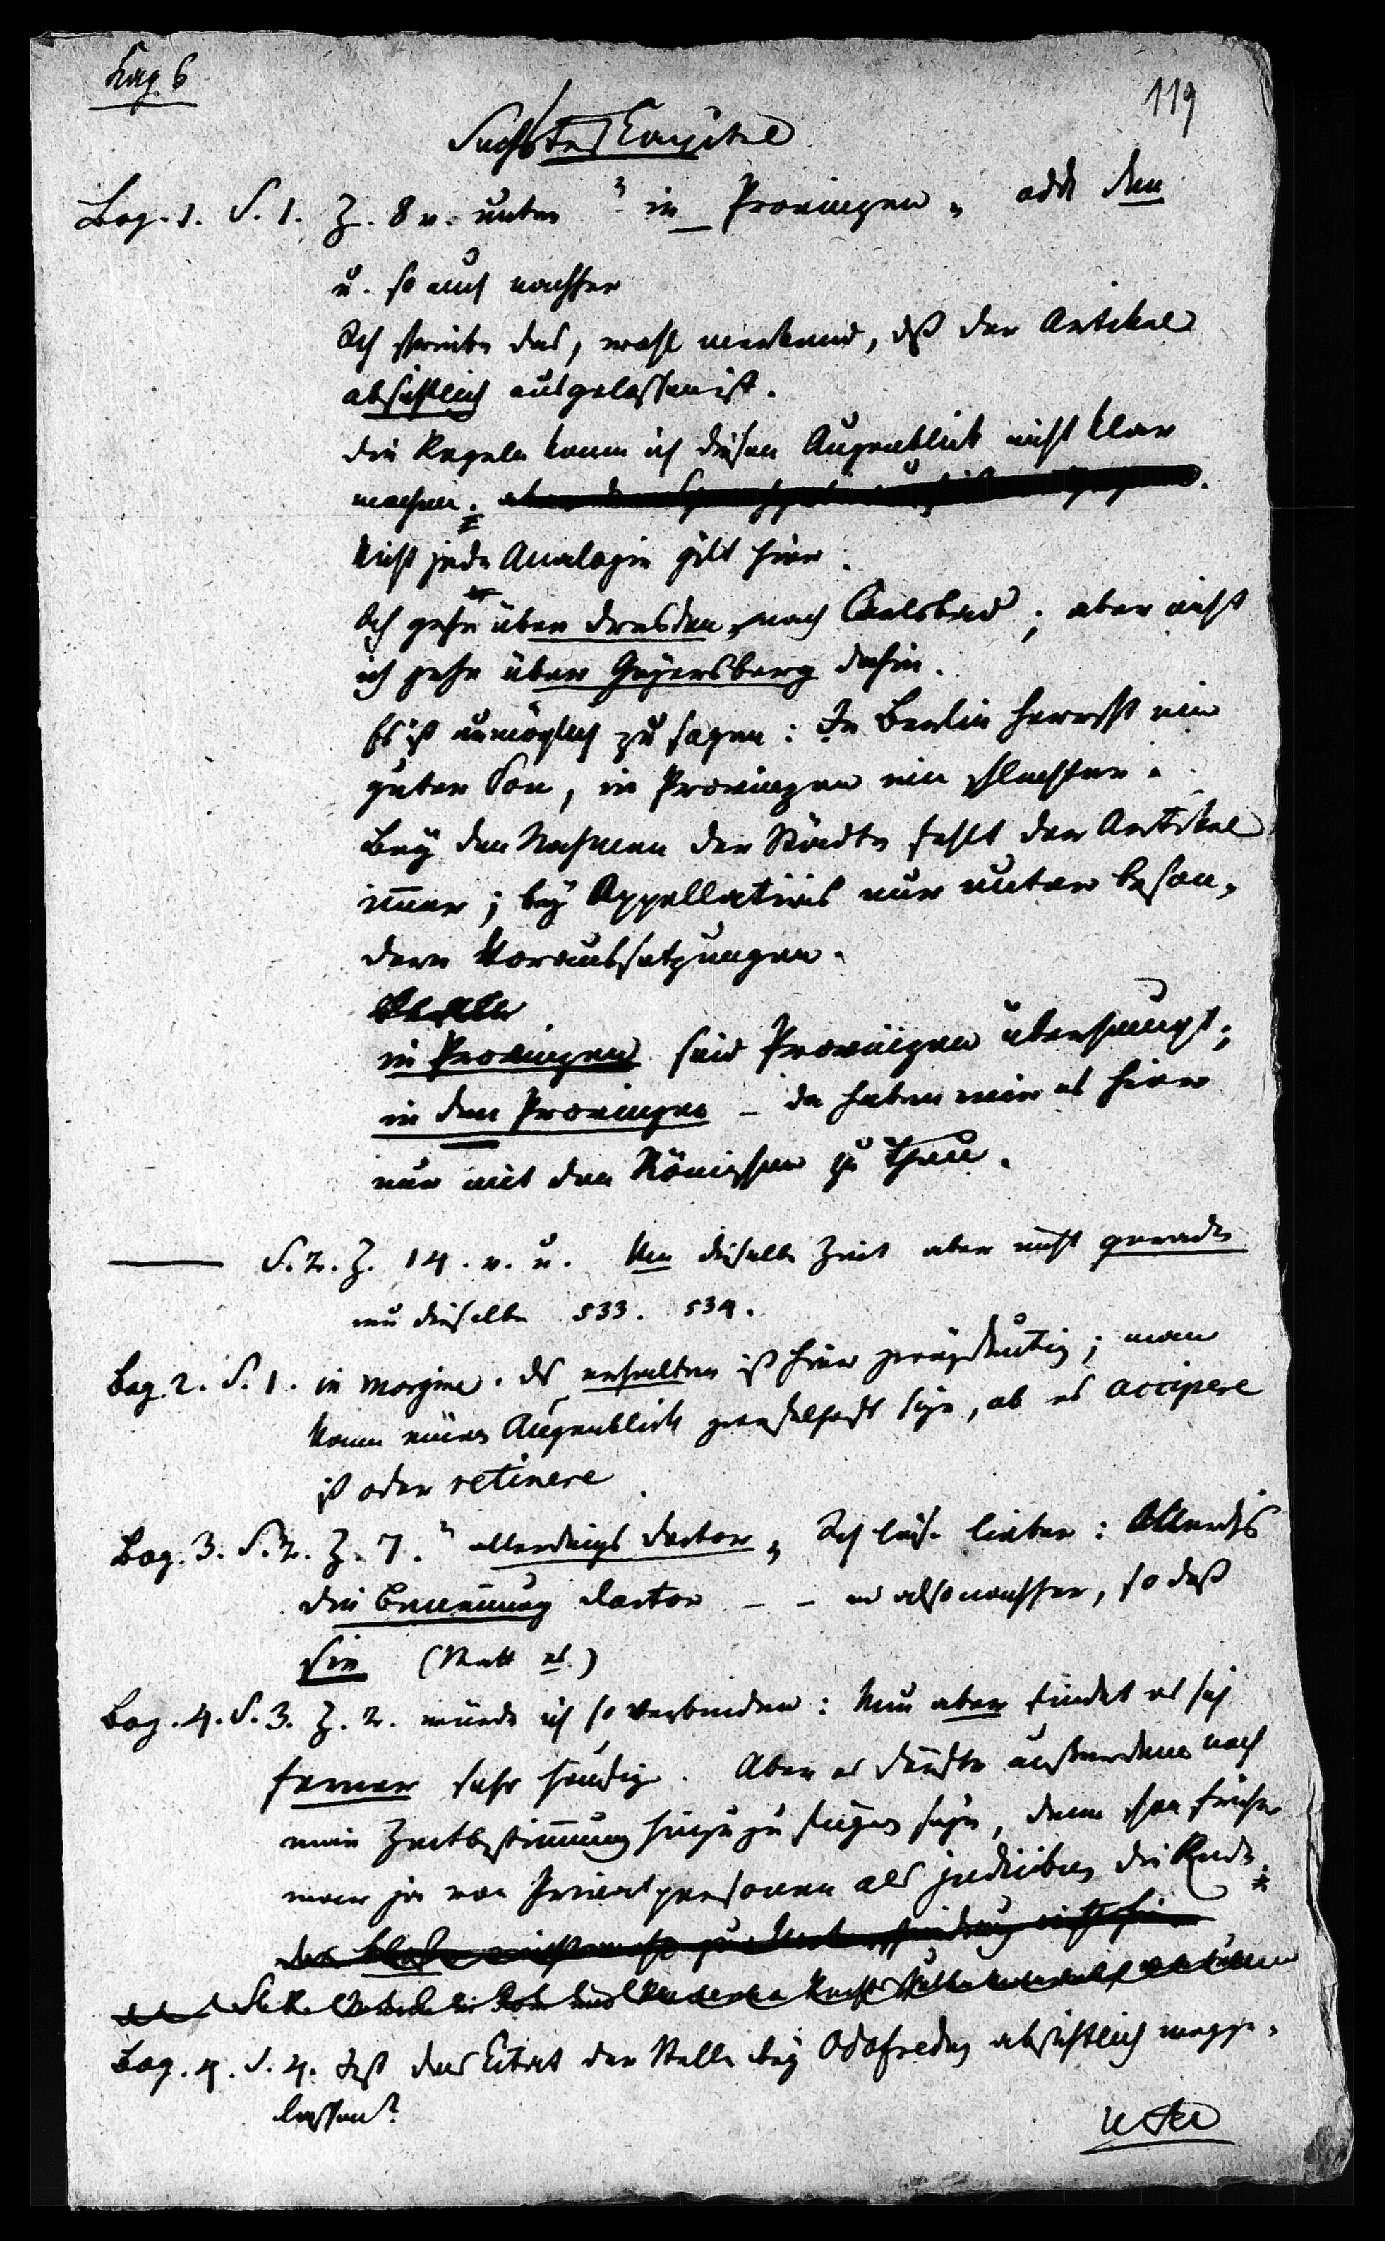 Kap. 6
119
Sechstes Capitel
Bog. 1. S. 1. Z. 8 v. unten „in Provinzen„ adde den
u. so auch nachher
Ich schreibe das, wohl merkend, dß der Artikel
absichtlich ausgelassen ist.
Die Regeln kann ich diesen Augenblick nicht klar
machen.
Nicht jede Analogie gilt hier.
Ich gehe über Dresden nach Carlsbad; aber nicht
ich gehe über Geyersberg dahin.
Es ist unmöglich zu sagen: In Berlin herrscht ein
guter Ton, in Provinzen ein schlechter.
Bey den Nahmen der Städte fehlt der Artikel
immer; bey Appellativis nur unter beson-
dern Voraussetzungen.
in Provinzen sind Provinzen überhaupt;
in den Provinzen – da haben wir es hier
nur mit den Römischen zu thun.
S. 2. Z. 14. v. u. Um dieselbe Zeit aber nicht gerade
um dieselbe 533. 534.
Bog. 2. S. 1. in margine. Das erhalten ist hier zweydeutig; man
kann einen Augenblick zweifelhaft seyn, ob es accipere
ist oder retinere
Bog. 3. S. 2. Z. 7. „allerdings Doctor„ Ich läse lieber: Allerdings
die Benennung Doctor – – und also nachher, so daß
sie (Statt es.)
Bog. 4. S. 3. Z. 2. würde ich so verbinden: Nun aber findet es sich
ferner sehr häufig. Aber es dürfte außerdem noch
eine Zeitbestimmung hinzu zu fügen seyn, denn schon früher
war ja von Privatpersonen als judicibus die Rede.
Bog. 4. S. 4. Ist das Citat der Stelle bey Odofredus absichtlich wegge-
lassen?